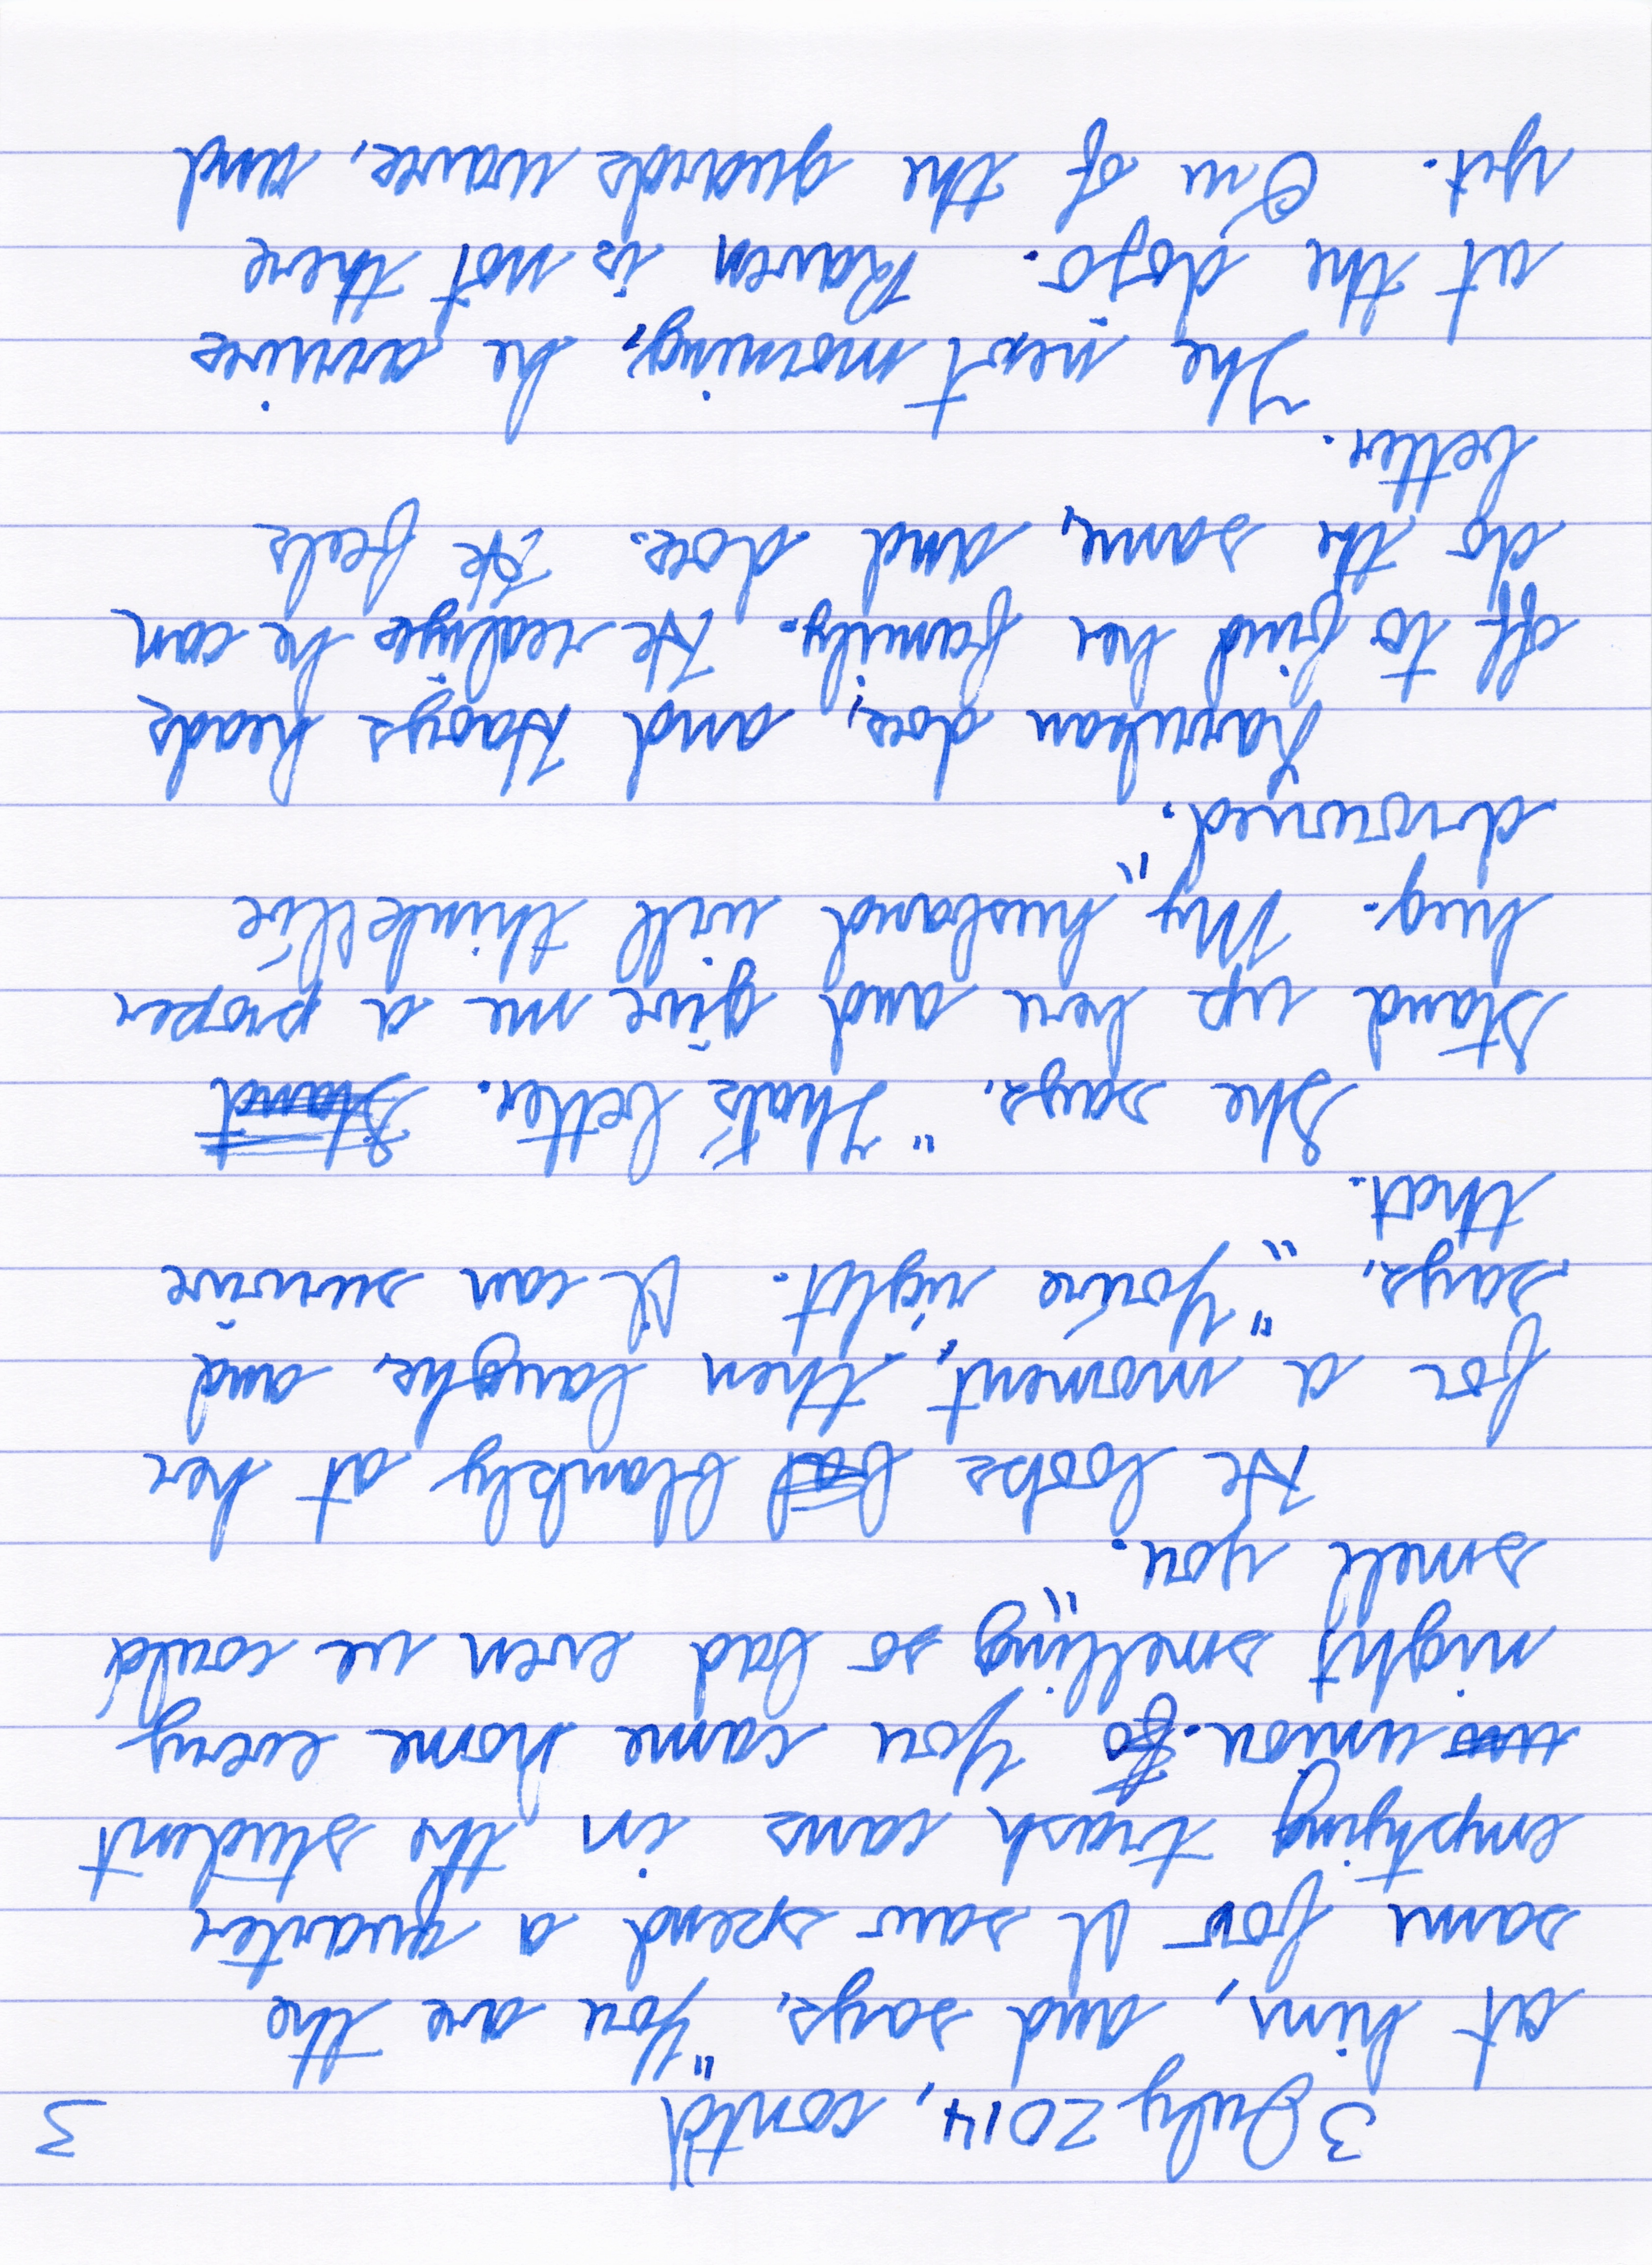 3 July 2014, cont'd 3
at him, and says, "You are the
same for I saw spend a quarter
emptying trash cans in the student
un union. So You came home every
night smelling so bad even we could
smell you."
He looks bl blankly at her
for a moment, then laughs, and
says, "You're right. I can survive
that."
She says, "That's better. Stand
Stand up here and give me a proper
hug. My husband will think I've
drowned."
Harulean does, and Haoys heads
off to find her family. He realizes he can
do the same, and does. He feels
better.
The next morning, he arrives
at the dojo. Raven is not there
yet. One of the guards waves, and